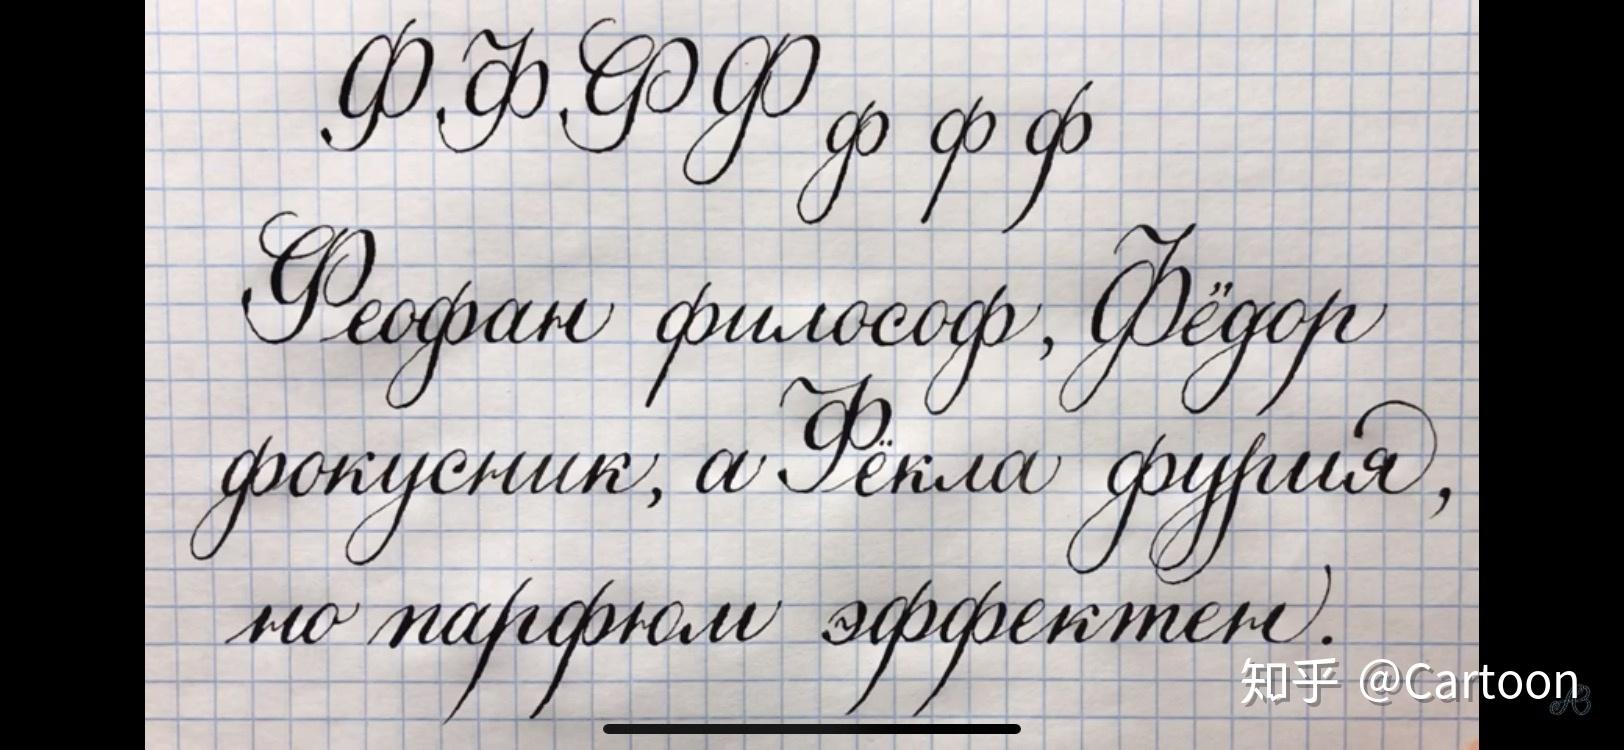 Ф Ф Ф Ф ф ф ф
Феофан философ, Фёдор
фокусник, а Фёкла фурия,
но парфюм эффектен.
知乎 @Cartoon